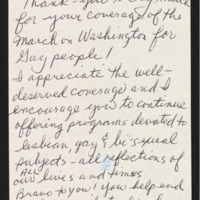 Thank-you so very much
for your coverage of the
March on Washington for
Gay people!
I appreciate the well-
deserved coverage and I
encourage you to continue
offering programs devoted to
lesbian, gay & bi-sexual
subjects - all reflections of
ALL our lives and times.
Bravo to you! You help end